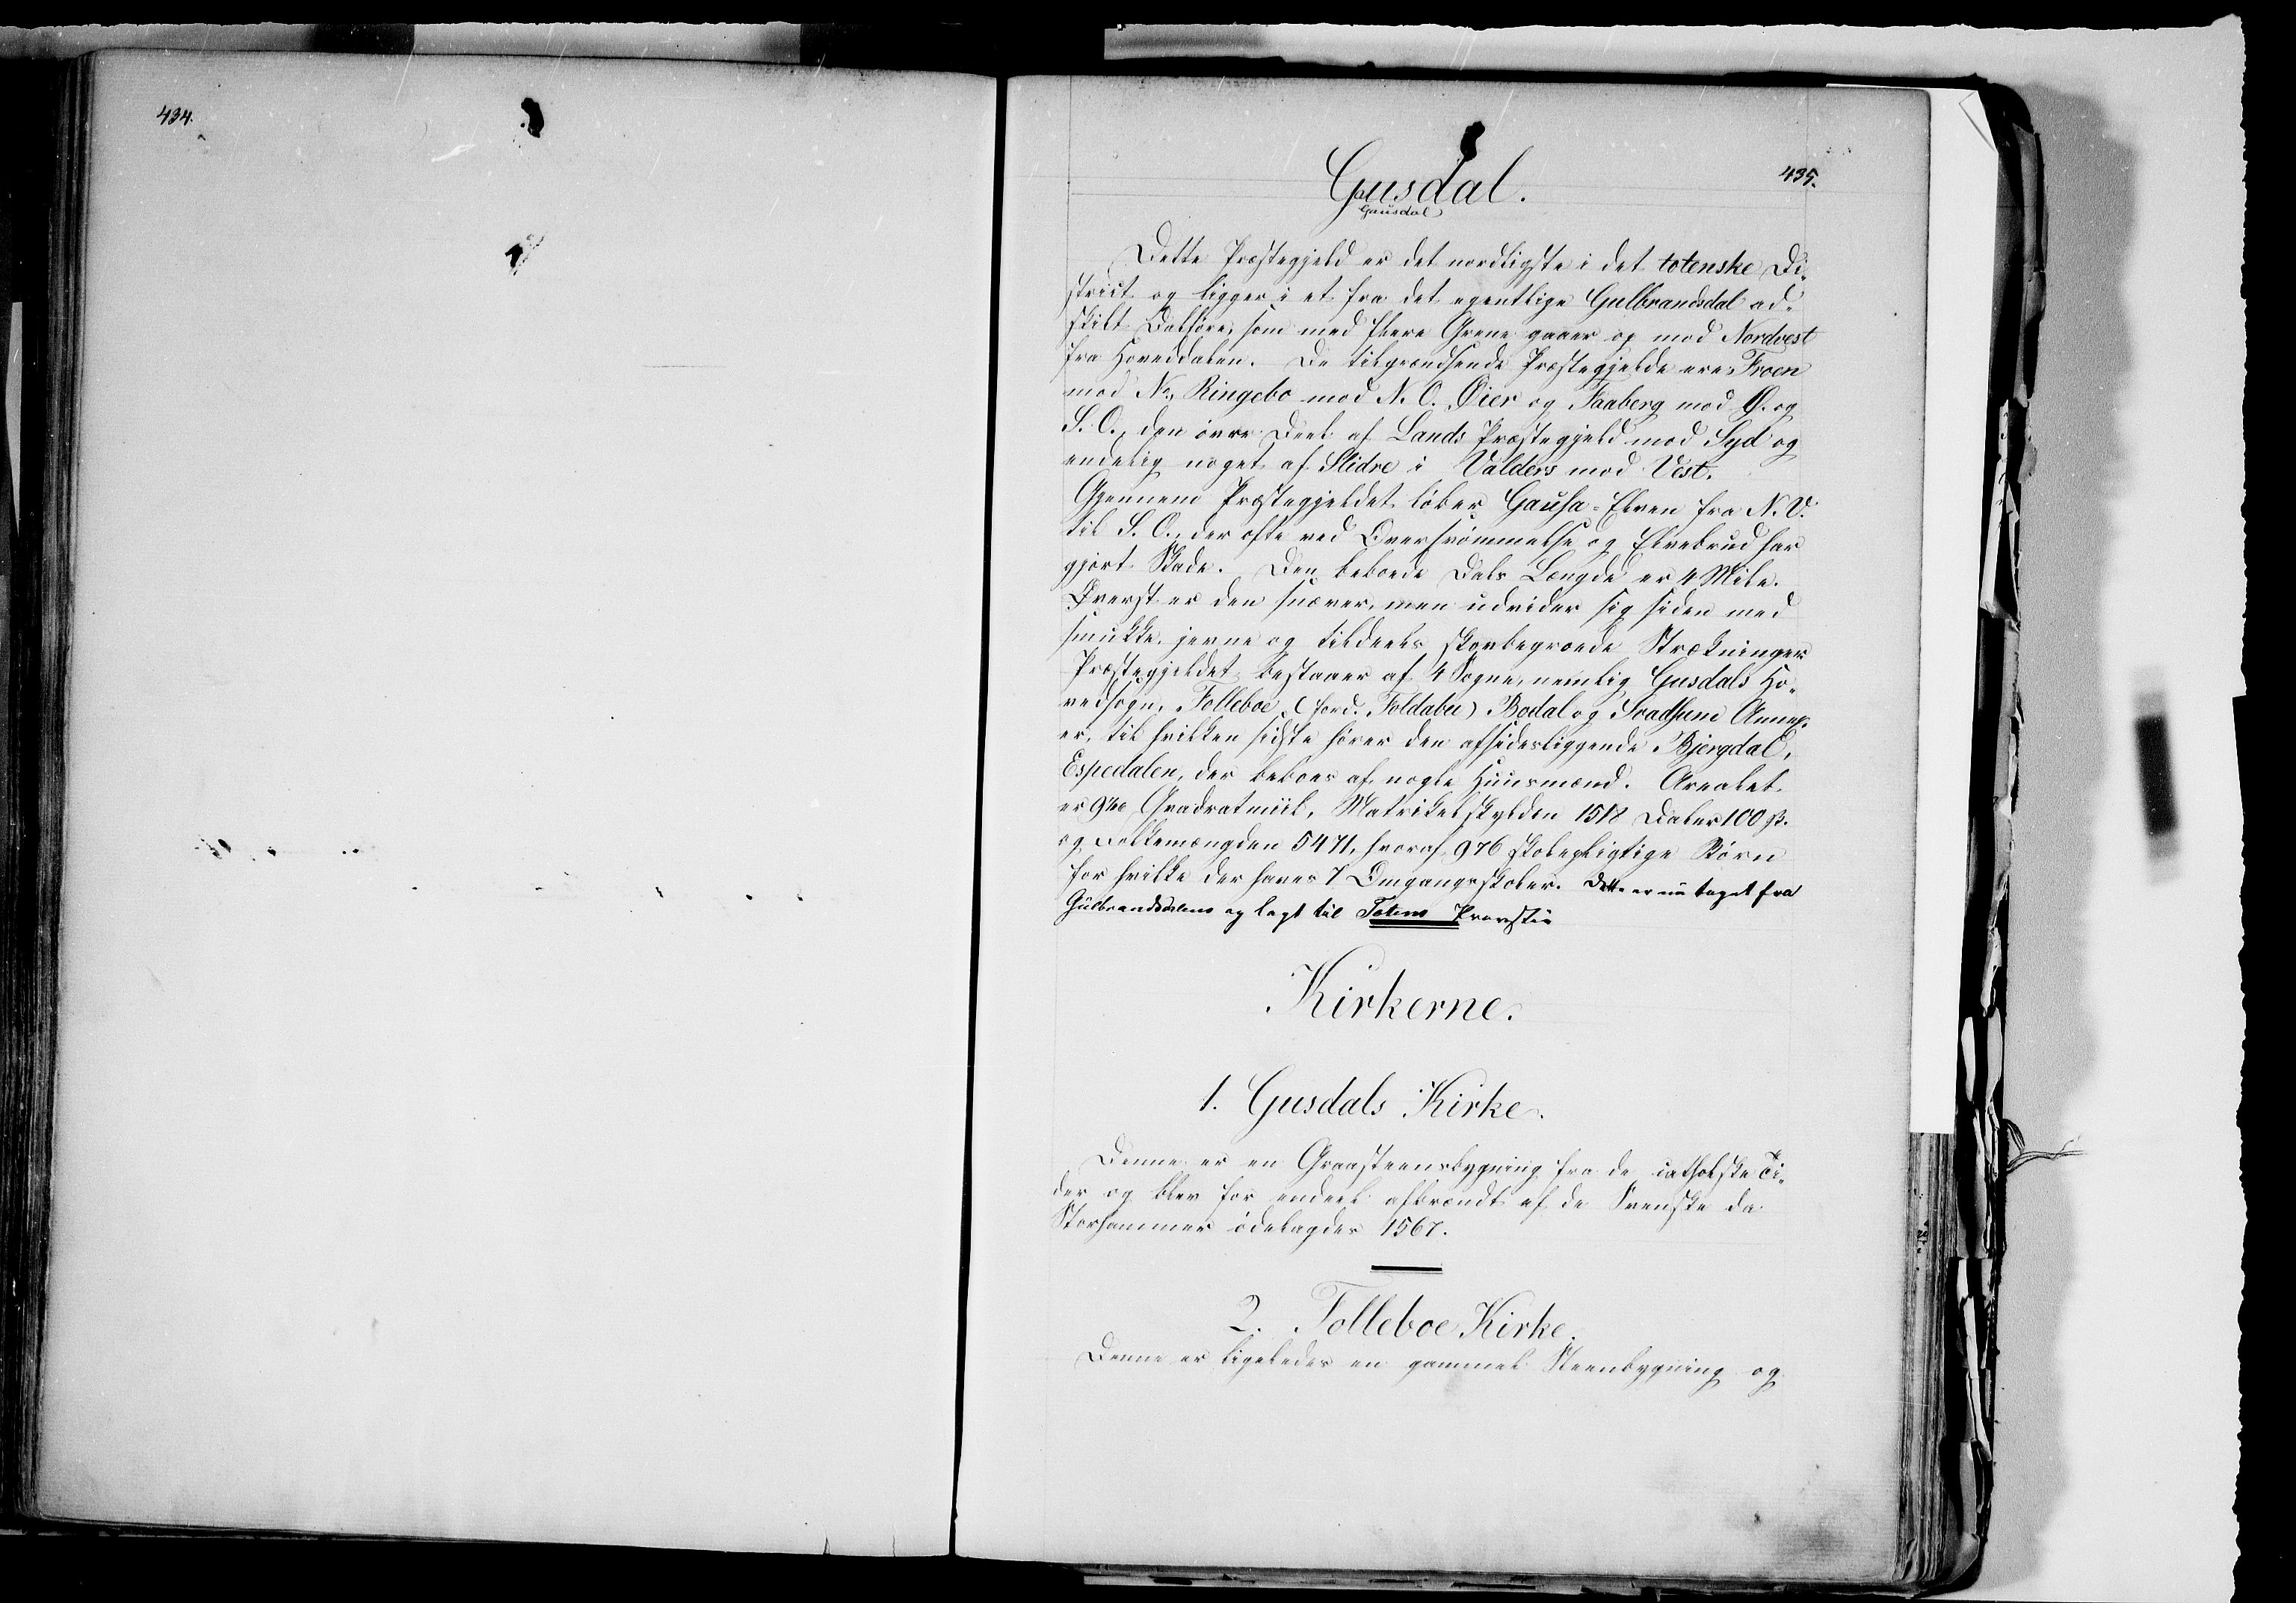 434.
435.
Gusdal.
Gausdal
Dette Præstegjeld er det nordligste i det totenske Di-
strict og ligger i et fra det egentlige Gulbrandsdal ad-
skilt Dalføre, som med flere Grene gaaer op mod Nordvest
fra Hoveddalen. De tilgrændsende Præstegjelde ere, Froen
mod N., Ringebo mod N. O. Øier og Faaberg mod Ø. og
S. O., den øvre Deel af Lands Præstegjeld mod Syd og
endelig noget af Slidre i Valders mod Vest.
Gjennem Præstegjeldet løber Gausa-Elven fra N. V.
til S. O., der ofte ved Oversvømmelse og Elvebrud har
gjort Skade. Den beboede Dals Længde er 4 Mile.
Øverst er den snæver, men udvider sig siden med
smukke, jevne og tildeels skovbegroede Strækninger
Præstegjeldet bestaaer af 4 Sogne, nemlig Gusdals Ho-
vedsogn, Folleboe, (ford. Foldabu) Bodal og Svadsum Annex-
er, til hvilken sidste hører den afsidesliggende Bjergdal,
Espedalen, der beboes af nogle Huusmænd. Arealet
er Qvadratmiil, Matrikelskylden 1518 Daler 100 ß.
og Folkemængden 5471, hvoraf 976 skolepligtige Børn
for hvilke der haves 7 Omgangsskoler. Dette er nu taget fra
Gulbrandsdalens og lagt til Totens Provstie
Kirkerne.
1. Gusdals Kirke.
Denne er en Graasteensbygning fra de catholske Ti-
der og blev for endeel afbrændt af de Svenske da
Storhammer ødelagdes 1567.
2. Folleboe Kirke.
Denne er ligeledes en gammel Steenbygning og